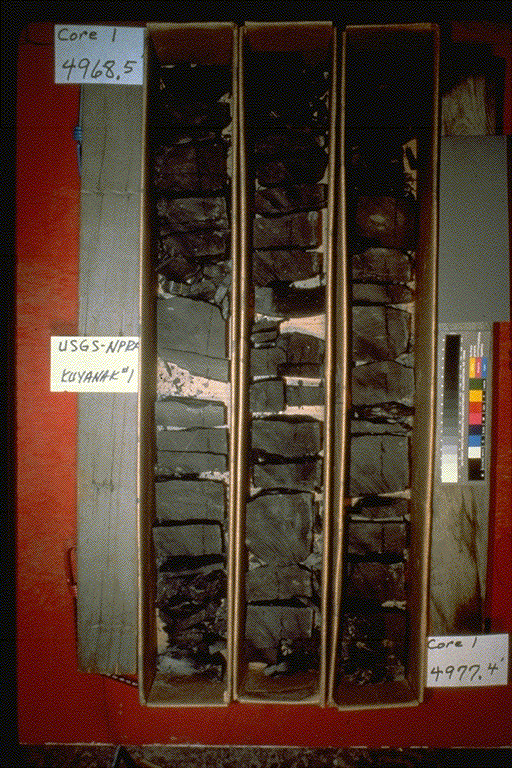 Core 1
4968.5'
USGS-NPRA
KUYANAK #1
Core 1
4977.4'